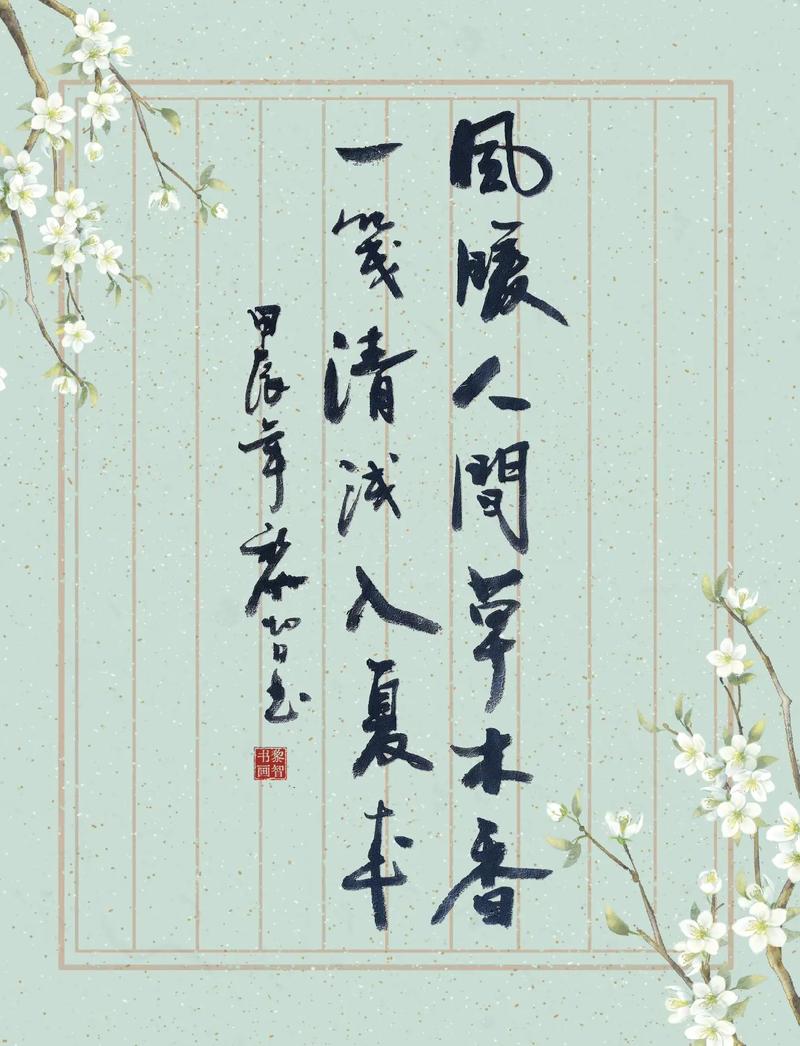 風暖人間草木香
一箋清浅入夏来
甲辰年黎智书
黎智书画